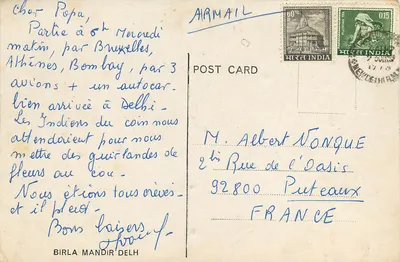 Cher Papa,
Partie à 6h Mercredi
matin, par Bruxelles,
Athènes, Bombay, par 3
avions + un autocar
bien arrivée à Delhi.
Les Indiens du coin nous
attendaient pour nous
mettre des guirlandes de
fleurs au cou.
Nous étions tous crevés
et il pleut.
Bons baisers
BIRLA MANDIR DELH
AIRMAIL
POST CARD
60
भारत INDIA
0.15
भारत INDIA
M. Albert NONQUE
2 bis Rue de l'Oasis
92800 Puteaux
FRANCE